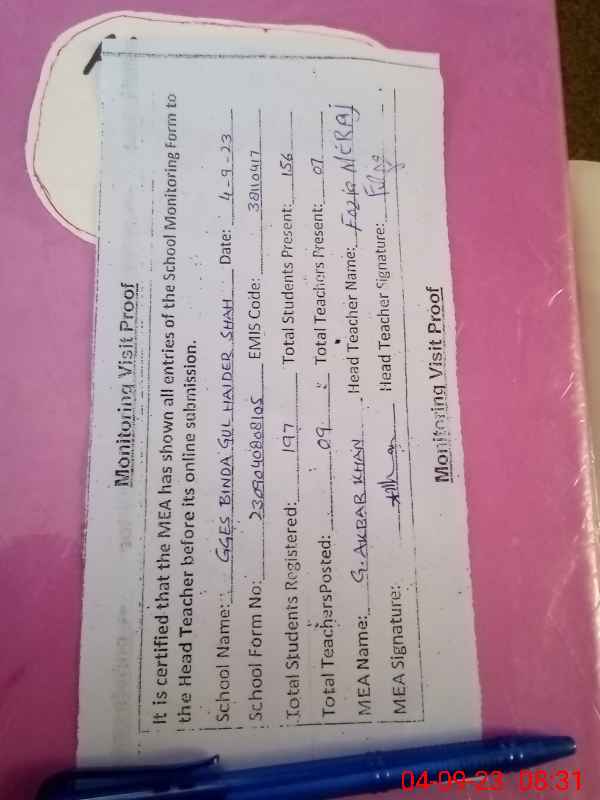 Monitoring Visit Proof
It is certified that the MEA has shown all entries of the School Monitoring Form to
the Head Teacher before its online submission.
School Name: GGES BINDA GUL HAIDER SHAH Date: 4-9-23
School Form No: 2309040808105 EMIS Code: 38110417
Total Students Registered: 197 Total Students Present: 156
Total TeachersPosted: 09 Total Teachers Present: 07
MEA Name: G. AKBAR KHAN Head Teacher Name: MERAJ
MEA Signature: Head Teacher Signature:
Monitoring Visit Proof
04-09-23 08:31